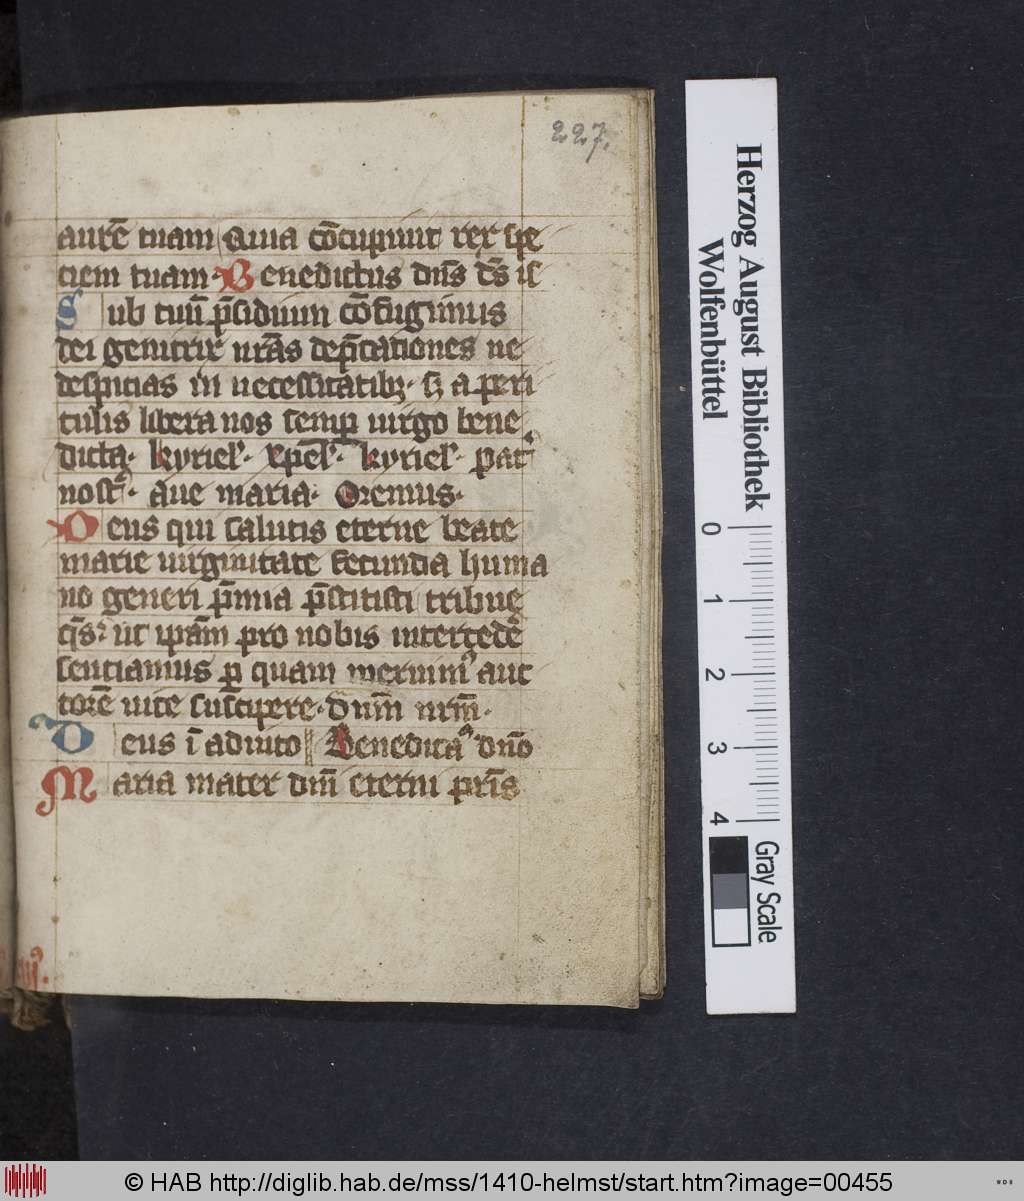 227.
aurē tuam Quia cōcupiuit rex spe
ciem tuam. Benedictus dn̄s ds̄ is
Sub tuū p̄sidium cōfugimus
dei genitrix nrās dep̄cationes ne
despicias in necessitatibꝫ. sꝫ a peri
culis libera nos semꝑ uirgo bene
dicta. kyriel'. xp̄el'. kyriel'. pat'
nost'. aue maria. Oremus.
Deus qui salutis eterne beate
marie uirginitate fecunda huma
no generi p̄mia p̄stitisti tribue
q̄s' ut ipām pro nobis intercedē
sentiamus ꝑ quam meruim' auc
torē uite suscipere. dnūm nrm̄.
Deus ī adiuto Benedica' dn̄o
Maria mater dnī eterni pris̄
Herzog August Bibliothek
Wolfenbüttel
0 1 2 3 4
Gray Scale
© HAB http://diglib.hab.de/mss/1410-helmst/start.htm?image=00455